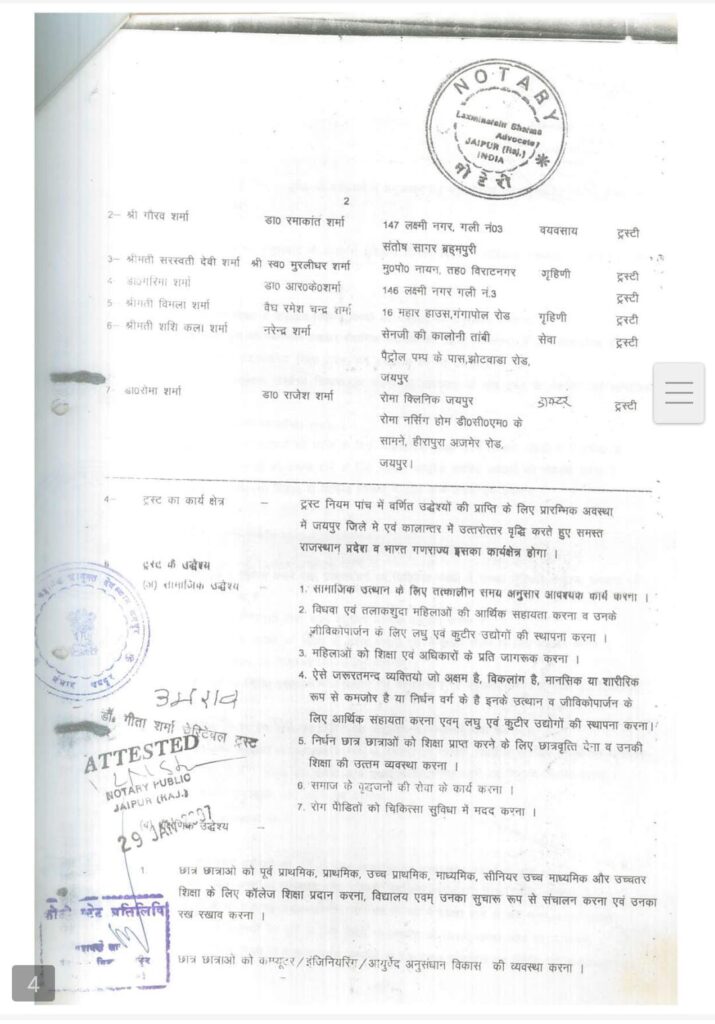 NOTARY
Laxminarain Sharma
Advocate
JAIPUR (Raj.)
INDIA
नोटेरी
2
2– श्री गौरव शर्मा डा0 रमाकांत शर्मा 147 लक्ष्मी नगर, गली नं03 वयवसाय ट्रस्टी
संतोष सागर ब्रहमपुरी
3– श्रीमती सरस्वती देवी शर्मा श्री स्व0 मुरलीधर शर्मा मु0पो0 नायन, तह0 विराटनगर गृहिणी ट्रस्टी
4 डा0गरिमा शर्मा डा0 आर0के0शर्मा 146 लक्ष्मी नगर गली नं.3 ट्रस्टी
5– श्रीमती विमला शर्मा वैध रमेश चन्द्र शर्मा 16 महार हाउस,गंगापोल रोड गृहिणी ट्रस्टी
6– श्रीमती शशि कला शर्मा नरेन्द्र शर्मा सेनजी की कालोनी तांबी सेवा ट्रस्टी
पैट्रोल पम्प के पास,झोटवाडा रोड,
जयपुर
7– डा0रोमा शर्मा डा0 राजेश शर्मा रोमा क्लिनिक जयपुर डाक्टर ट्रस्टी
रोमा नर्सिग होम डी0सी0एम0 के
सामने, हीरापुरा अजमेर रोड,
जयपुर।
4– ट्रस्ट का कार्य क्षेत्र – ट्रस्ट नियम पांच में वर्णित उद्धेश्यों की प्राप्ति के लिए प्रारम्भिक अवस्था
में जयपुर जिले मे एवं कालान्तर में उत्तरोत्तर वृद्धि करते हुए समस्त
राजस्थान प्रदेश व भारत गणराज्य इसका कार्यक्षेत्र होगा ।
5 ट्रस्ट के उद्धेश्य
(अ) सामाजिक उद्धेश्य – 1. सामाजिक उत्थान के लिए तत्कालीन समय अनुसार आवश्यक कार्य करना ।
2. विधवा एवं तलाकशुदा महिलाओं की आर्थिक सहायता करना व उनके
जीविकोपार्जन के लिए लघु एवं कुटीर उद्योगों की स्थापना करना ।
3. महिलाओं को शिक्षा एवं अधिकारों के प्रति जागरूक करना ।
4. ऐसे जरूरतमन्द व्यक्तियो जो अक्षम है, विकलांग है, मानसिक या शारीरिक
रूप से कमजोर है या निर्धन वर्ग के है इनके उत्थान व जीविकोपार्जन के
लिए आर्थिक सहायता करना एवम् लघु एवं कुटीर उद्योगों की स्थापना करना।
5. निर्धन छात्र छात्राओं को शिक्षा प्राप्त करने के लिए छात्रवृत्ति देना व उनकी
शिक्षा की उत्तम व्यवस्था करना ।
6. समाज के वृद्धजनों की सेवा के कार्य करना ।
7. रोग पीडितों को चिकित्सा सुविधा में मदद करना ।
डॉ. गीता शर्मा चेरिटेबल ट्रस्ट
ATTESTED
NOTARY PUBLIC
JAIPUR (RAJ.)
29 JAN 2007
उद्धेश्य –
1. छात्र छात्राओ को पूर्व प्राथमिक, प्राथमिक, उच्च प्राथमिक, माध्यमिक, सीनियर उच्च माध्यमिक और उच्चतर
शिक्षा के लिए कॉलेज शिक्षा प्रदान करना, विद्यालय एवम् उनका सुचारू रूप से संचालन करना एवं उनका
रख रखाव करना ।
फोटो स्टेट प्रतिलिपि
छात्र छात्राओ को कम्प्यूटर/इंजिनियरिंग/आयुर्वेद अनुसंधान विकास की व्यवस्था करना ।
4